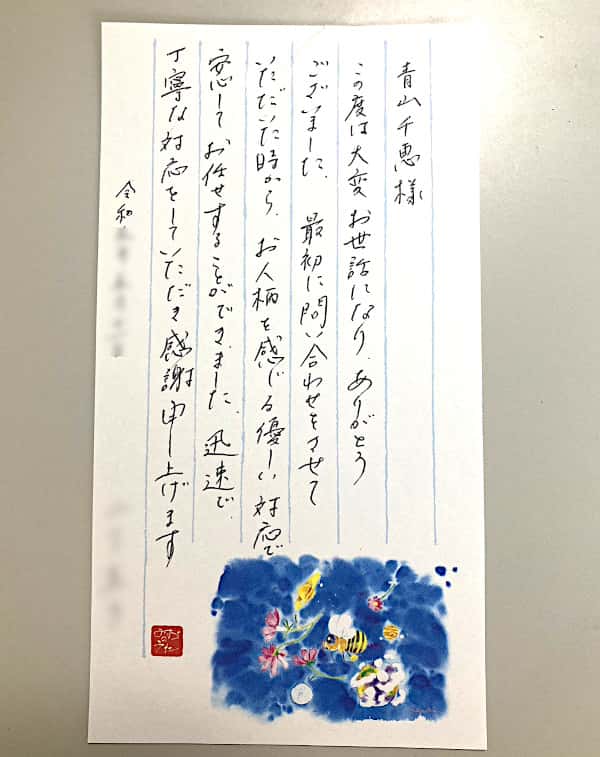 青山千恵様
この度は大変お世話になり、ありがとう
ございました。 最初に問い合わせをさせて
いただいた時から、お人柄を感じる優しい対応で
安心してお任せすることができました。迅速で、
丁寧な対応をしていただき感謝申し上げます
令和